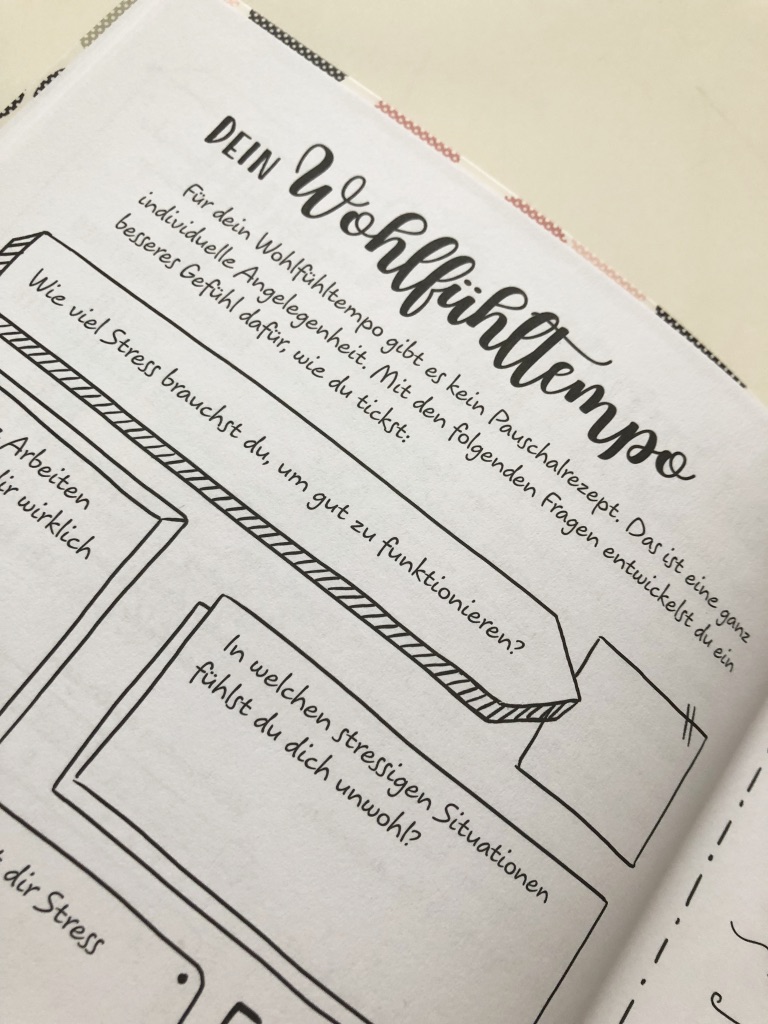 DEIN Wohlfühltempo
Für dein Wohlfühltempo gibt es kein Pauschalrezept. Das ist eine ganz
individuelle Angelegenheit. Mit den folgenden Fragen entwickelst du ein
besseres Gefühl dafür, wie du tickst:
Wie viel Stress brauchst du, um gut zu funktionieren?
Arbeiten
dir wirklich
In welchen stressigen Situationen
fühlst du dich unwohl?
dir Stress